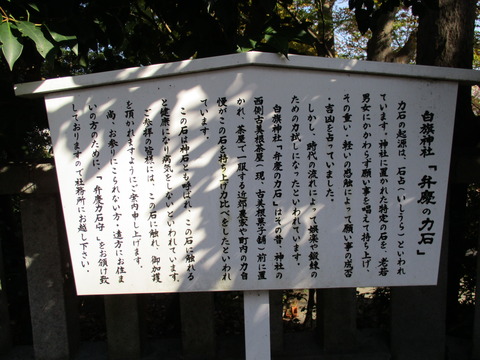 白旗神社「弁慶の力石」
力石の起源は、石占（いしうら）といわれ
ています。神社に置かれた特定の石を、老若
男女にかかわらず願い事を唱えて持ち上げ、
その重い・軽いの感触によって願い事の成否
・吉凶を占っていました。
しかし、時代の流れによって娯楽や鍛錬の
ための力試しになったといわれています。
白旗神社「弁慶の力石」はその昔、神社の
西側古美根茶屋（現、古美根菓子舗）前に置
かれ、茶屋で一服する近郊農家や町内の力自
慢がこの石を持ち上げ力比べをしたといわれ
ています。
この石は神石とも呼ばれ、この石に触れる
と健康になり病気をしないといわれています。
ご参拝の皆様には、この石に触れ、御加護
を頂かれますようにご案内申し上げます。
尚、お参りにこられない方・遠方にお住ま
いの方のために、「弁慶力石守」をお頒け致
しておりますので社務所にお越し下さい。